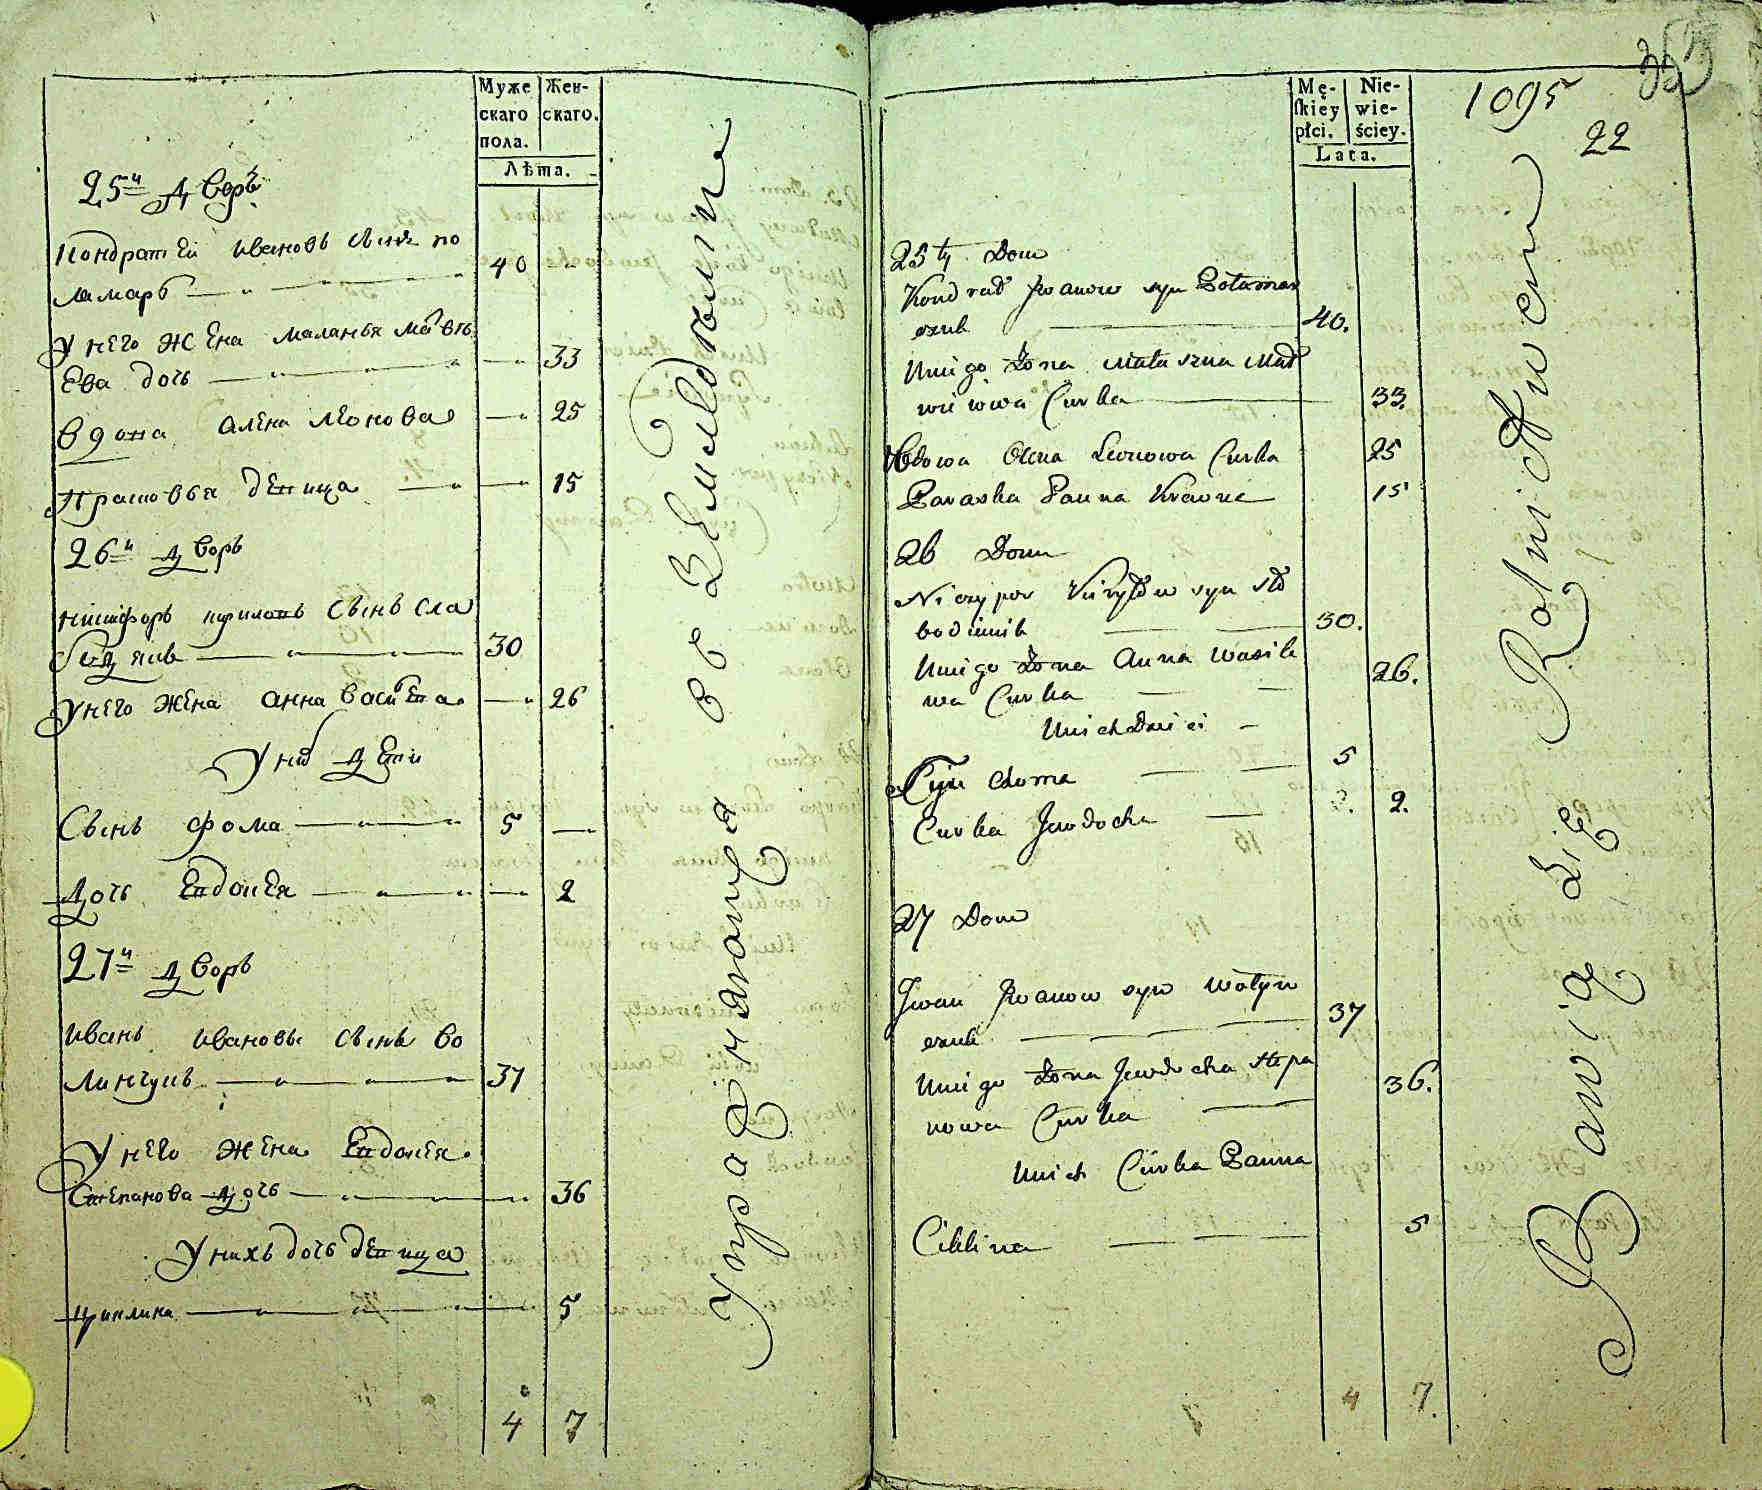 Муже
скаго
пола.
Жен-
скаго.
Лѣта.
25й дворъ
Кондратей Ивановъ Сынъ по
ламаръ 40
У него жена маланья матвѣ
ева дочь 33
вдова алена леонова 25
прасковья девица 15
26й дворъ
никифоръ кириловъ Сынъ сла
бодянъ 30
У него жена анна василева 26
У них дети
Сынъ фома 5
дочь евдокея 2
27й дворъ
Иванъ Ивановъ Сынъ во
линчукъ 37
У него жена Евдокея
Степанова дочь 36
У нихъ дочь девица
кикилина 5
4 7
Упражняющия ся въ Земледѣлии
Mę-
skiey
płci.
Nie-
wie-
ściey.
Lata.
1095
22
25ty Dom
Kondrad Iwanow syn Połamar
czuk 40.
Uniego Żona Małaszna Mat
wiejowa Curka 33.
Wdowa Olena Leonowa Curka 25
Paraska Panna 15
26 Dom
Niczypor Kiryłow syn Sło
bodianik 30.
Uniego Żona Anna Wasile
wa Curka 26.
Unich Dzieci
Syn Choma 5
Curka Jewdocha 2.
27 Dom
Iwan Iwanow syn Wołyn
czuk 37
Uniego Żona Jewdocha Stepa
nowa Curka 36.
Unich Curka Panna
Cikilina 5
4 7.
Bawią się Rolnictwem